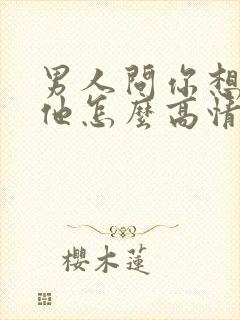 男人問你想
他怎麼高情
櫻木蓮